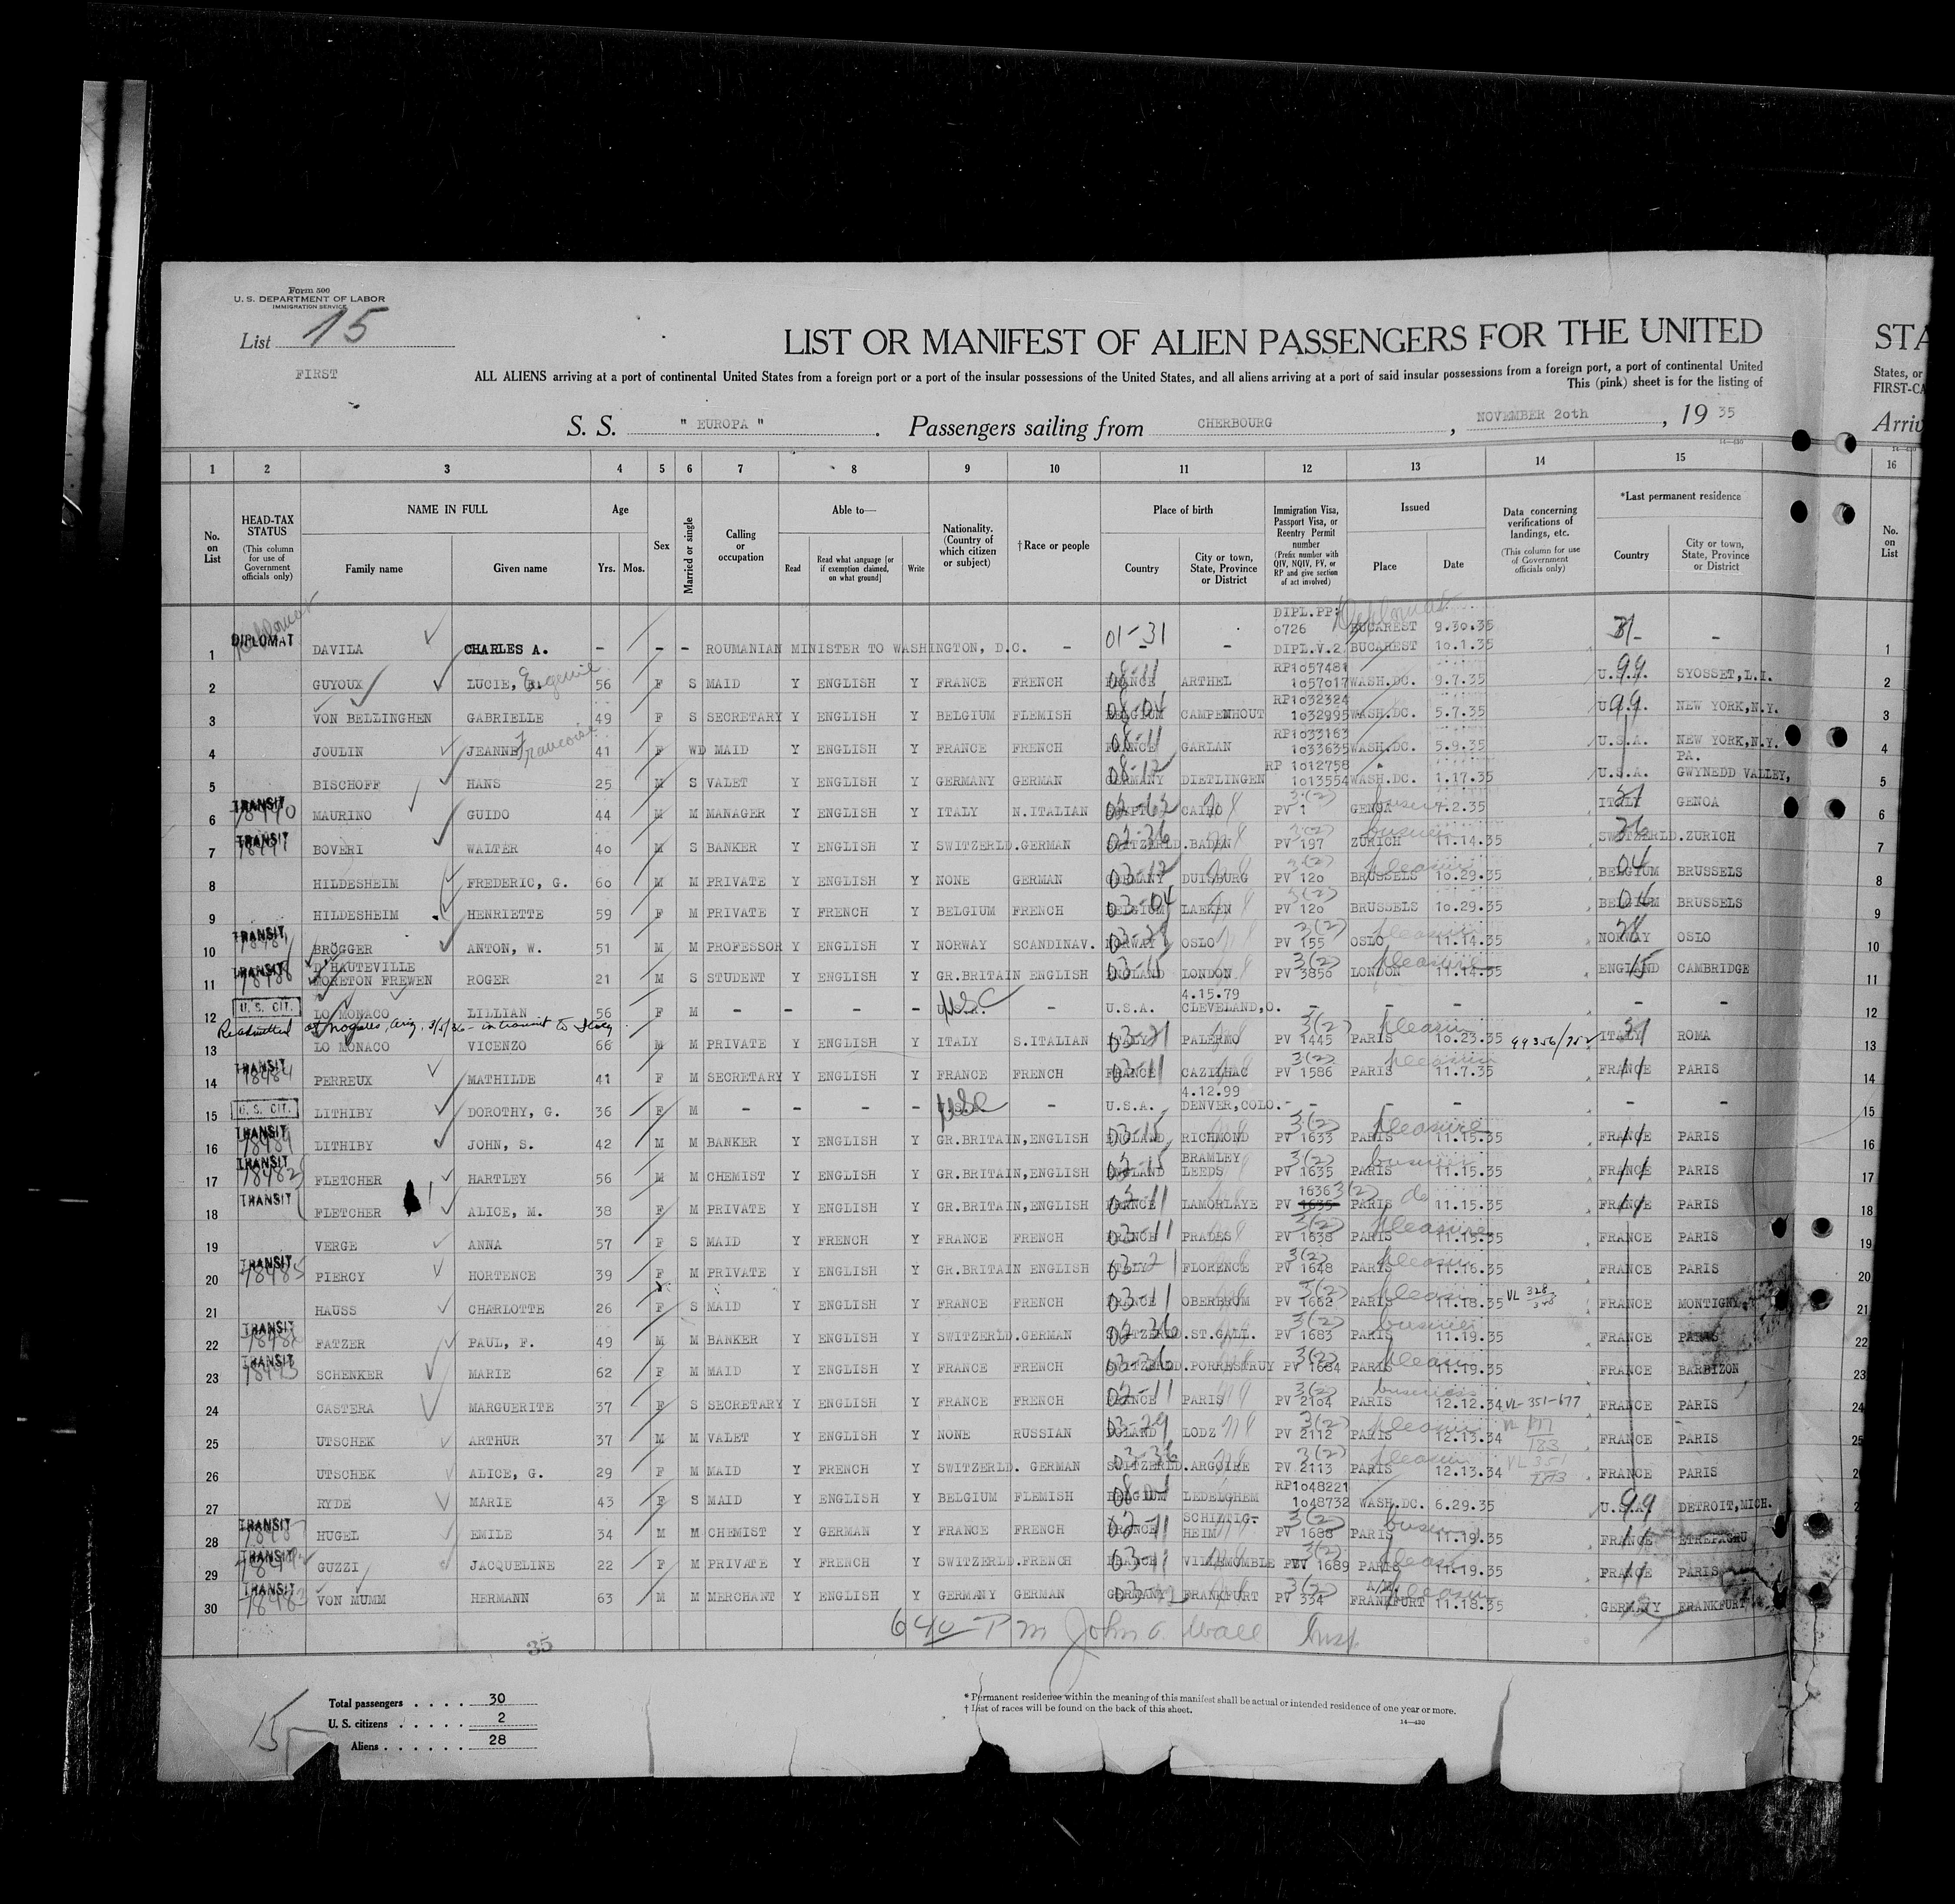 Form 500
U. S. DEPARTMENT OF LABOR
IMMIGRATION SERVICE
List 15
FIRST
LIST OR MANIFEST OF ALIEN PASSENGERS FOR THE UNITED
STA
ALL ALIENS arriving at a port of continental United States from a foreign port or a port of the insular possessions of the United States, and all aliens arriving at a port of said insular possessions from a foreign port, a port of continental United
States, or
This (pink) sheet is for the listing of
FIRST-CA
S. S. " EUROPA " . Passengers sailing from CHERBOURG , NOVEMBER 2oth , 19 35
Arriv
14—430
1 2 3 4 5 6 7 8 9 10 11 12 13 14 15 16
No. on List
HEAD-TAX STATUS (This column for use of Government officials only)
NAME IN FULL Family name Given name
Age Yrs. Mos.
Sex
Married or single
Calling or occupation
Able to— Read Read what language [or if exemption claimed, on what ground] Write
Nationality. (Country of which citizen or subject)
†Race or people
Place of birth Country City or town, State, Province or District
Immigration Visa, Passport Visa, or Reentry Permit number (Prefix number with QIV, NQIV, PV, or RP and give section of act involved)
Issued Place Date
Data concerning verifications of landings, etc. (This column for use of Government officials only)
*Last permanent residence Country City or town, State, Province or District
No. on List
1 DIPLOMAT DAVILA CHARLES A. - - - ROUMANIAN MINISTER TO WASHINGTON, D.C. - 01-31 - DIPL.PP: 0726 BUCAREST 9.30.35 DIPL.V.2 BUCAREST 10.1.35 Diplomat 31 - - 1
2 GUYOUX LUCIE, Eugenie 56 F S MAID Y ENGLISH Y FRANCE FRENCH 08-11 FRANCE ARTHEL RP1057481 1057017 WASH.DC. 9.7.35 U.S.A. 99 SYOSSET,L.I. 2
3 VON BELLINGHEN GABRIELLE 49 F S SECRETARY Y ENGLISH Y BELGIUM FLEMISH 08-04 BELGIUM CAMPENHOUT RP1032324 1032995 WASH.DC. 5.7.35 U.S.A. 99 NEW YORK,N.Y. 3
4 JOULIN JEANNE Francoise 41 F WD MAID Y ENGLISH Y FRANCE FRENCH 08-11 FRANCE GARLAN RP1033163 1033635 WASH.DC. 5.9.35 U.S.A. NEW YORK,N.Y. 4
5 BISCHOFF HANS 25 M S VALET Y ENGLISH Y GERMANY GERMAN 08-12 GERMANY DIETLINGEN RP 1012758 1013554 WASH.DC. 1.17.35 U.S.A. PA. GWYNEDD VALLEY, 5
6 TRANSIT MAURINO GUIDO 44 M M MANAGER Y ENGLISH Y ITALY N.ITALIAN EGYPT CAIRO 3(2) PV 1 GENOA 7.2.35 ITALY GENOA 6
7 TRANSIT BOVERI WALTER 40 M S BANKER Y ENGLISH Y SWITZERLD.GERMAN 02-36 SWITZERLD.BADEN 3(2) PV 197 ZURICH 11.14.35 business SWITZERLD.ZURICH 7
8 HILDESHEIM FREDERIC, G. 60 M M PRIVATE Y ENGLISH Y NONE GERMAN 03-12 GERMANY DUISBURG 3(2) PV 120 BRUSSELS 10.29.35 pleasure BELGIUM 04 BRUSSELS 8
9 HILDESHEIM HENRIETTE 59 F M PRIVATE Y FRENCH Y BELGIUM FRENCH 03-04 BELGIUM LAEKEN 3(2) PV 120 BRUSSELS 10.29.35 BELGIUM 04 BRUSSELS 9
10 TRANSIT BRÖGGER ANTON, W. 51 M M PROFESSOR Y ENGLISH Y NORWAY SCANDINAV. NORWAY OSLO 3(2) PV 155 OSLO 11.14.35 pleasure NORWAY OSLO 10
11 TRANSIT D'HAUTEVILLE MORETON FREWEN ROGER 21 M S STUDENT Y ENGLISH Y GR.BRITAIN ENGLISH 03-15 ENGLAND LONDON 3(2) PV 3856 LONDON 11.14.35 pleasure ENGLAND 15 CAMBRIDGE 11
12 U. S. CIT. LO MONACO LILLIAN 56 F M - - - - U.S.A. USC - U.S.A. 4.15.79 CLEVELAND,O. - - - - - 12
Readmitted at Nogales, Ariz. 3/5/36 - in transit to Italy
13 LO MONACO VICENZO 66 M M PRIVATE Y ENGLISH Y ITALY S.ITALIAN 03-21 ITALY PALERMO 3(2) PV 1445 PARIS 10.23.35 pleasure 99356/752 ITALY ROMA 13
14 TRANSIT 78484 PERREUX MATHILDE 41 F M SECRETARY Y ENGLISH Y FRANCE FRENCH 03-11 FRANCE CAZILHAC 3(2) PV 1586 PARIS 11.7.35 pleasure FRANCE 11 PARIS 14
15 U. S. CIT. LITHIBY DOROTHY, G. 36 F M - - - - USC - U.S.A. 4.12.99 DENVER,COLO. - - - - - 15
16 TRANSIT LITHIBY JOHN, S. 42 M M BANKER Y ENGLISH Y GR.BRITAIN,ENGLISH 03-15 ENGLAND RICHMOND 3(2) PV 1633 PARIS 11.15.35 pleasure FRANCE 11 PARIS 16
17 TRANSIT 78482 FLETCHER HARTLEY 56 M M CHEMIST Y ENGLISH Y GR.BRITAIN,ENGLISH ENGLAND BRAMLEY LEEDS 3(2) PV 1635 PARIS 11.15.35 business FRANCE 11 PARIS 17
18 TRANSIT FLETCHER ALICE, M. 38 F M PRIVATE Y ENGLISH Y GR.BRITAIN,ENGLISH FRANCE LAMORLAYE 1636 3(2) PV 1635 PARIS do 11.15.35 FRANCE 11 PARIS 18
19 VERGE ANNA 57 F S MAID Y FRENCH Y FRANCE FRENCH 03-11 FRANCE PRADES 3(2) PV 1638 PARIS 11.15.35 pleasure FRANCE PARIS 19
20 TRANSIT 78485 PIERCY HORTENCE 39 F M PRIVATE Y ENGLISH Y GR.BRITAIN ENGLISH ITALY FLORENCE 3(2) PV 1648 PARIS 11.16.35 pleasure FRANCE PARIS 20
21 HAUSS CHARLOTTE 26 F S MAID Y ENGLISH Y FRANCE FRENCH 03-11 FRANCE OBERBROM 3(2) PV 1662 PARIS 11.18.35 VL 328 FRANCE MONTIGNY 21
22 TRANSIT FATZER PAUL, F. 49 M M BANKER Y ENGLISH Y SWITZERLD.GERMAN SWITZERLD.ST.GALL. 3(2) PV 1683 PARIS 11.19.35 business FRANCE PARIS 22
23 TRANSIT 78493 SCHENKER MARIE 62 F M MAID Y ENGLISH Y FRANCE FRENCH 03-36 SWITZERLD.PORRESTRUY 3(2) PV 1684 PARIS 11.19.35 FRANCE BARBIZON 23
24 CASTERA MARGUERITE 37 F S SECRETARY Y ENGLISH Y FRANCE FRENCH 02-11 FRANCE PARIS 3(2) PV 2104 PARIS 12.12.34 business VL-351-677 FRANCE PARIS 24
25 UTSCHEK ARTHUR 37 M M VALET Y ENGLISH Y NONE RUSSIAN 03-29 POLAND LODZ 3(2) PV 2112 PARIS 12.13.34 pleasure FRANCE PARIS 25
26 UTSCHEK ALICE, G. 29 F M MAID Y FRENCH Y SWITZERLD. GERMAN 03-36 SWITZERLD.ARGOIRE 3(2) PV 2113 PARIS 12.13.34 pleasure VL 351 FRANCE PARIS
27 RYDE MARIE 43 F S MAID Y ENGLISH Y BELGIUM FLEMISH BELGIUM LEDELGHEM RP1048221 1048732 WASH.DC. 6.29.35 U.S.A. 99 DETROIT,MICH.
28 TRANSIT HUGEL EMILE 34 M M CHEMIST Y GERMAN Y FRANCE FRENCH 02-11 FRANCE SCHILTIG-HEIM 3(2) PV 1688 PARIS 11.19.35 FRANCE 11
29 TRANSIT GUZZI JACQUELINE 22 F M PRIVATE Y FRENCH Y SWITZERLD.FRENCH 03-11 FRANCE VILLEMOMBLE 3(2) PV 1689 PARIS 11.19.35 FRANCE 11 PARIS
30 TRANSIT 78483 VON MUMM HERMANN 63 M M MERCHANT Y ENGLISH Y GERMANY GERMAN GERMANY FRANKFURT 3(2) PV 334 A/M. FRANKFURT 11.18.35 pleasure GERMANY FRANKFURT
640 PM John A. Wall Insp.
35
15
Total passengers . . . . 30
U. S. citizens . . . . . 2
Aliens . . . . . . 28
* Permanent residence within the meaning of this manifest shall be actual or intended residence of one year or more.
† List of races will be found on the back of this sheet.
14—430